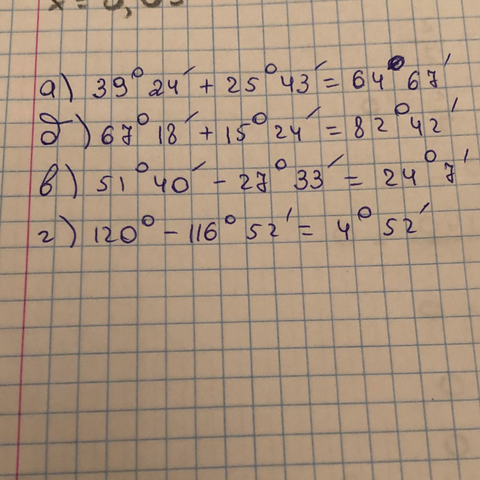 а) 39° 24′ + 25° 43′ = 64° 67′
б) 67° 18′ + 15° 24′ = 82° 42′
в) 51° 40′ - 27° 33′ = 24° 7′
г) 120° - 116° 52′ = 4° 52′